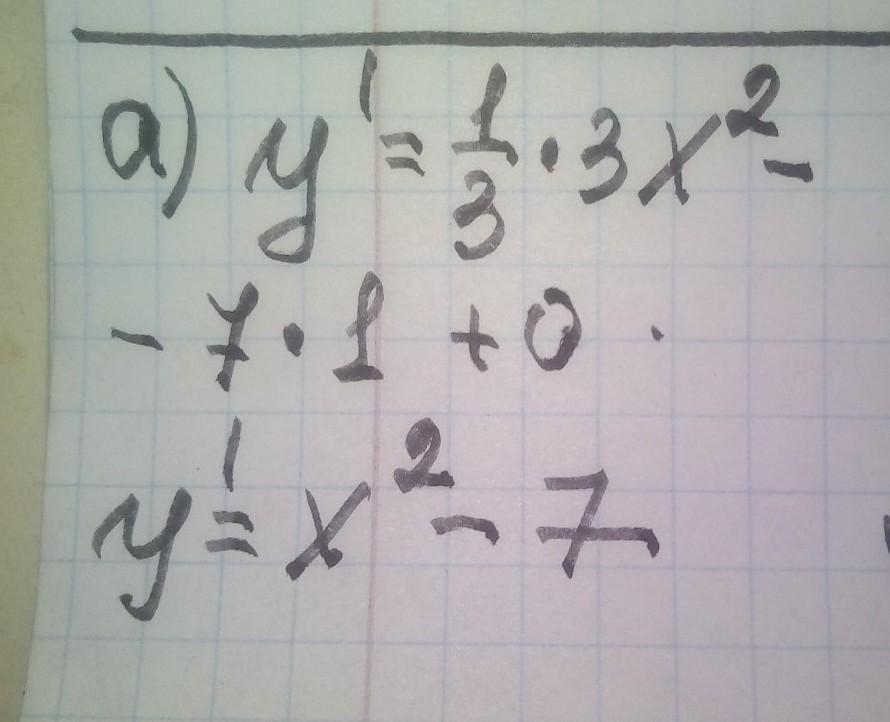 а) y' = 1/3 · 3x² -
- 7 · 1 + 0 .
y' = x² - 7